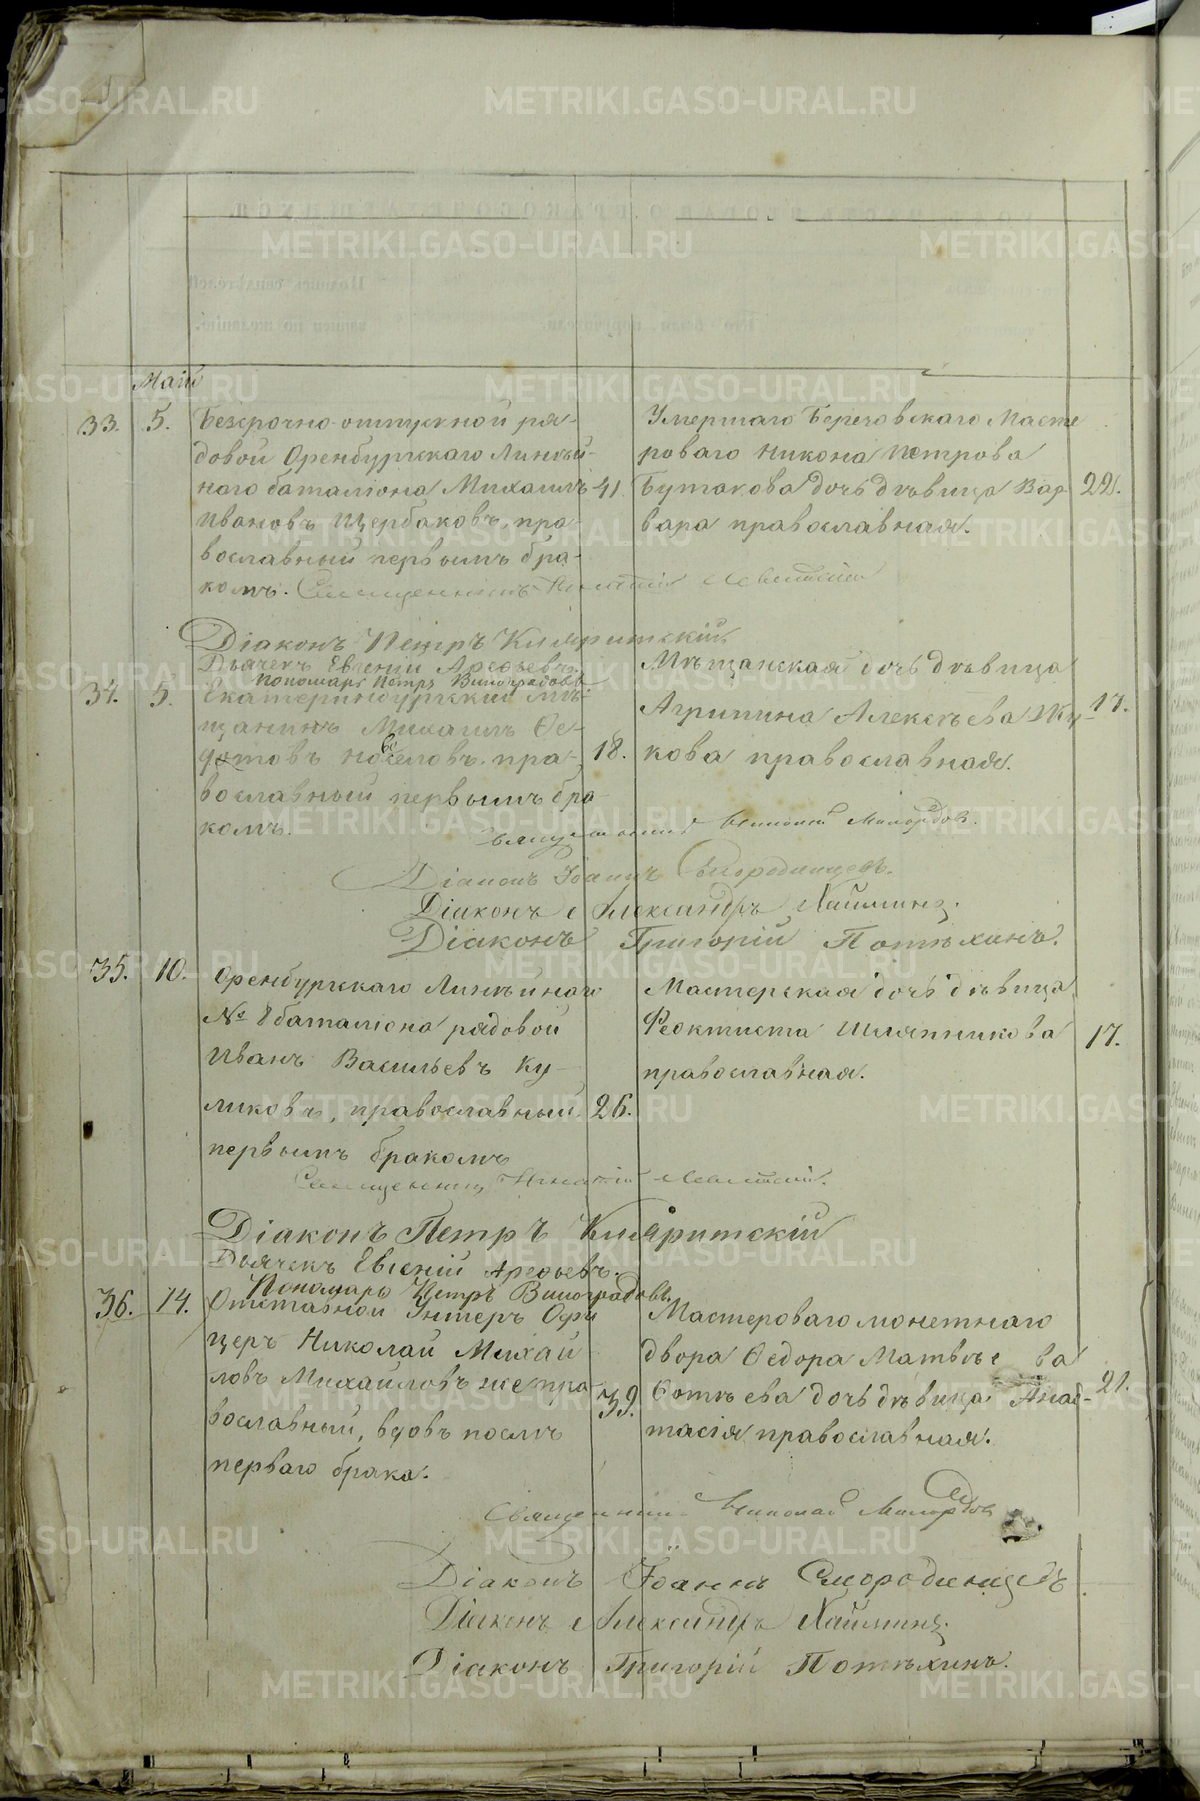 Маій
33. 5. Безсрочно-отпускной ря-
довой Оренбургскаго Линѣй-
наго баталіона Михаилъ 41.
Ивановъ Щербаковъ, пра-
вославный первымъ бра-
комъ.
Умершаго Березовскаго Масте
роваго Никона Петрова
Бутакова дочь дѣвица Вар 22.
вара православная.
Священникъ Игнатій
Діаконъ Петръ
Дьячекъ Евгеній Арефьевъ.
Пономарь Петръ Виноградовъ
34. 5. Екатеринбургскій мѣ-
щанинъ Михаилъ Ѳе-
дотовъ Новоселовъ, пра- 18.
вославный первымъ бра
комъ.
Мѣщанская дочь дѣвица
Агрипина Алексѣева Жу- 17.
кова православная.
Священникъ Николай
Діаконъ Іоаннъ Смородинцевъ.
Діаконъ Александръ
Діаконъ Григорій Потѣхинъ.
35. 10. Оренбургскаго Линѣйнаго
№ 8 баталіона рядовой
Иванъ Васильевъ Ку-
ликовъ, православный 26.
первымъ бракомъ
Мастерская дочь дѣвица
Феоктиста Шляпникова 17.
православная.
Священникъ Игнатій
Діаконъ Петръ
Дьячекъ Евгеній Арефьевъ.
Пономарь Петръ Виноградовъ.
36. 14. Отставной Унтеръ Офи
церъ Николай Михай
ловъ Михайловъ же пра 39.
вославный, вдовъ послѣ
перваго брака.
Мастероваго монетнаго
двора Ѳедора Матвѣева
Фотѣева дочь дѣвица Анас- 21.
тасія православная.
Священникъ Николай
Діаконъ Іоаннъ Смородинцевъ
Діаконъ Александръ
Діаконъ Григорій Потѣхинъ.
METRIKI.GASO-URAL.RU